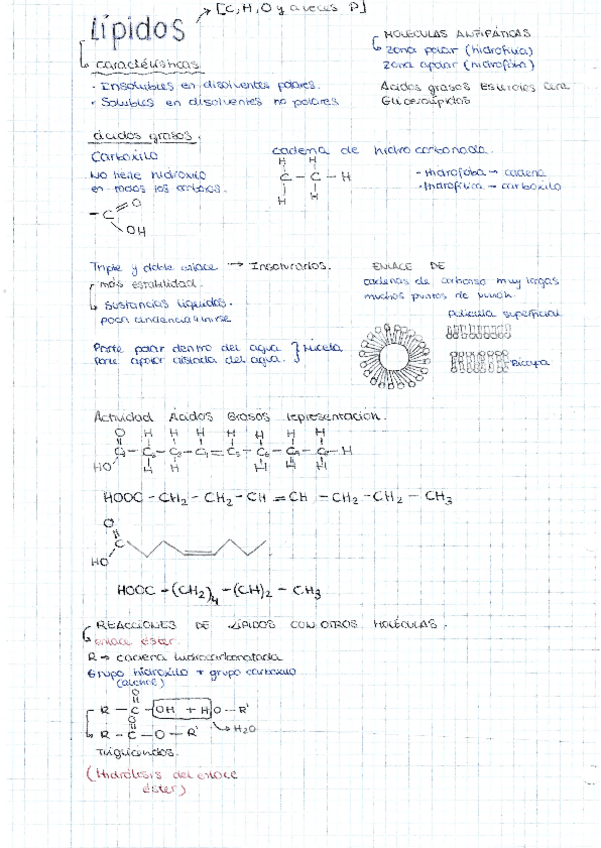 Lípidos → [C, H, O y a veces P]
características
• Insolubles en disolventes polares.
• Solubles en disolventes no polares
MOLÉCULAS ANFIPÁTICAS
zona polar (hidrofilia)
zona apolar (hidrofóbia)
Ácidos grasos
Glicerolípidos
ácidos grasos.
Carboxilo
No tiene hidroxilo
en todos los
-C
O
OH
cadena de hidrocarbonada.
H H
C - C - H
H H
- Hidrofóba → cadena
- Hidrofílica → carboxilo
Triple y doble enlace → Insaturados.
más estabilidad.
sustancias líquidas.
poca tendencia a unirse
ENLACE DE
cadenas de carbonos muy largas
muchos puntos de
Película superficial
Parte polar dentro del agua
Parte apolar aislada del agua.
} Micela
Bicapa
Actividad Ácidos Grasos representación.
O H H H H H H H
C1 - C2 - C3 - C4 = C5 - C6 - C7 - C8 - H
HO H H H H H
HOOC - CH2 - CH2 - CH = CH - CH2 - CH2 - CH3
O
C
HO
HOOC - (CH2)4 - (CH)2 - CH3
REACCIONES DE LÍPIDOS CON OTROS MOLÉCULAS.
enlace éster.
R → cadena hidrocarbonatada
Grupo hidroxilo + grupo carboxilo
(alcohol)
O
R - C - OH + HO - R'
O
R - C - O - R' → H2O
Trigliceridos.
(Hidrólisis del enlace
éster)